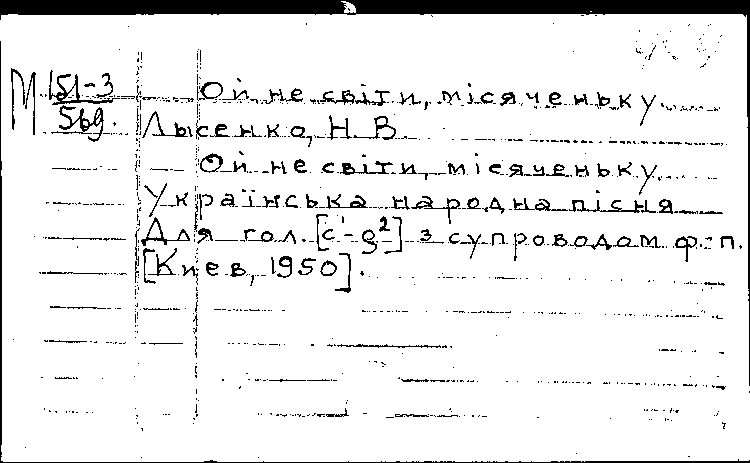 М 151-3
569.
Ой не світи, місяченьку
Лысенко, Н. В.
Ой не світи, місяченьку.
Українська народна пісня
Для гол. [c¹-g²] з супроводом ф.-п.
[Киев, 1950].